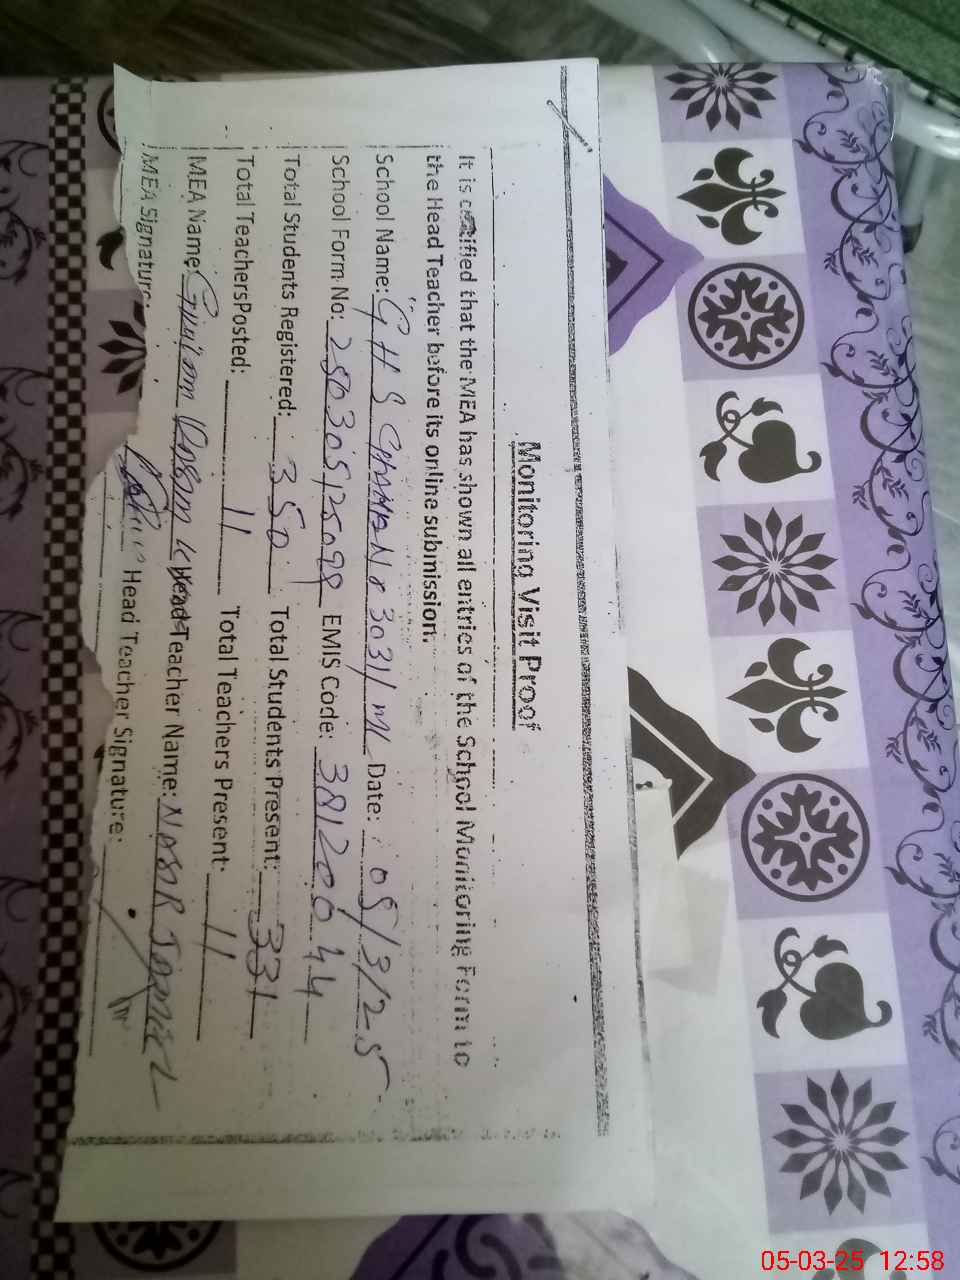 Monitoring Visit Proof
It is certified that the MEA has shown all entries of the School Monitoring Form to
the Head Teacher before its online submission.
School Name: GHS CHAK No 303/ML Date: 05/3/25
School Form No: EMIS Code: 38120044
Total Students Registered: 350 Total Students Present: 331
Total Teachers Posted: 11 Total Teachers Present: 11
MEA Name: Head Teacher Name: NASIR
MEA Signature: Head Teacher Signature:
05-03-25 12:58